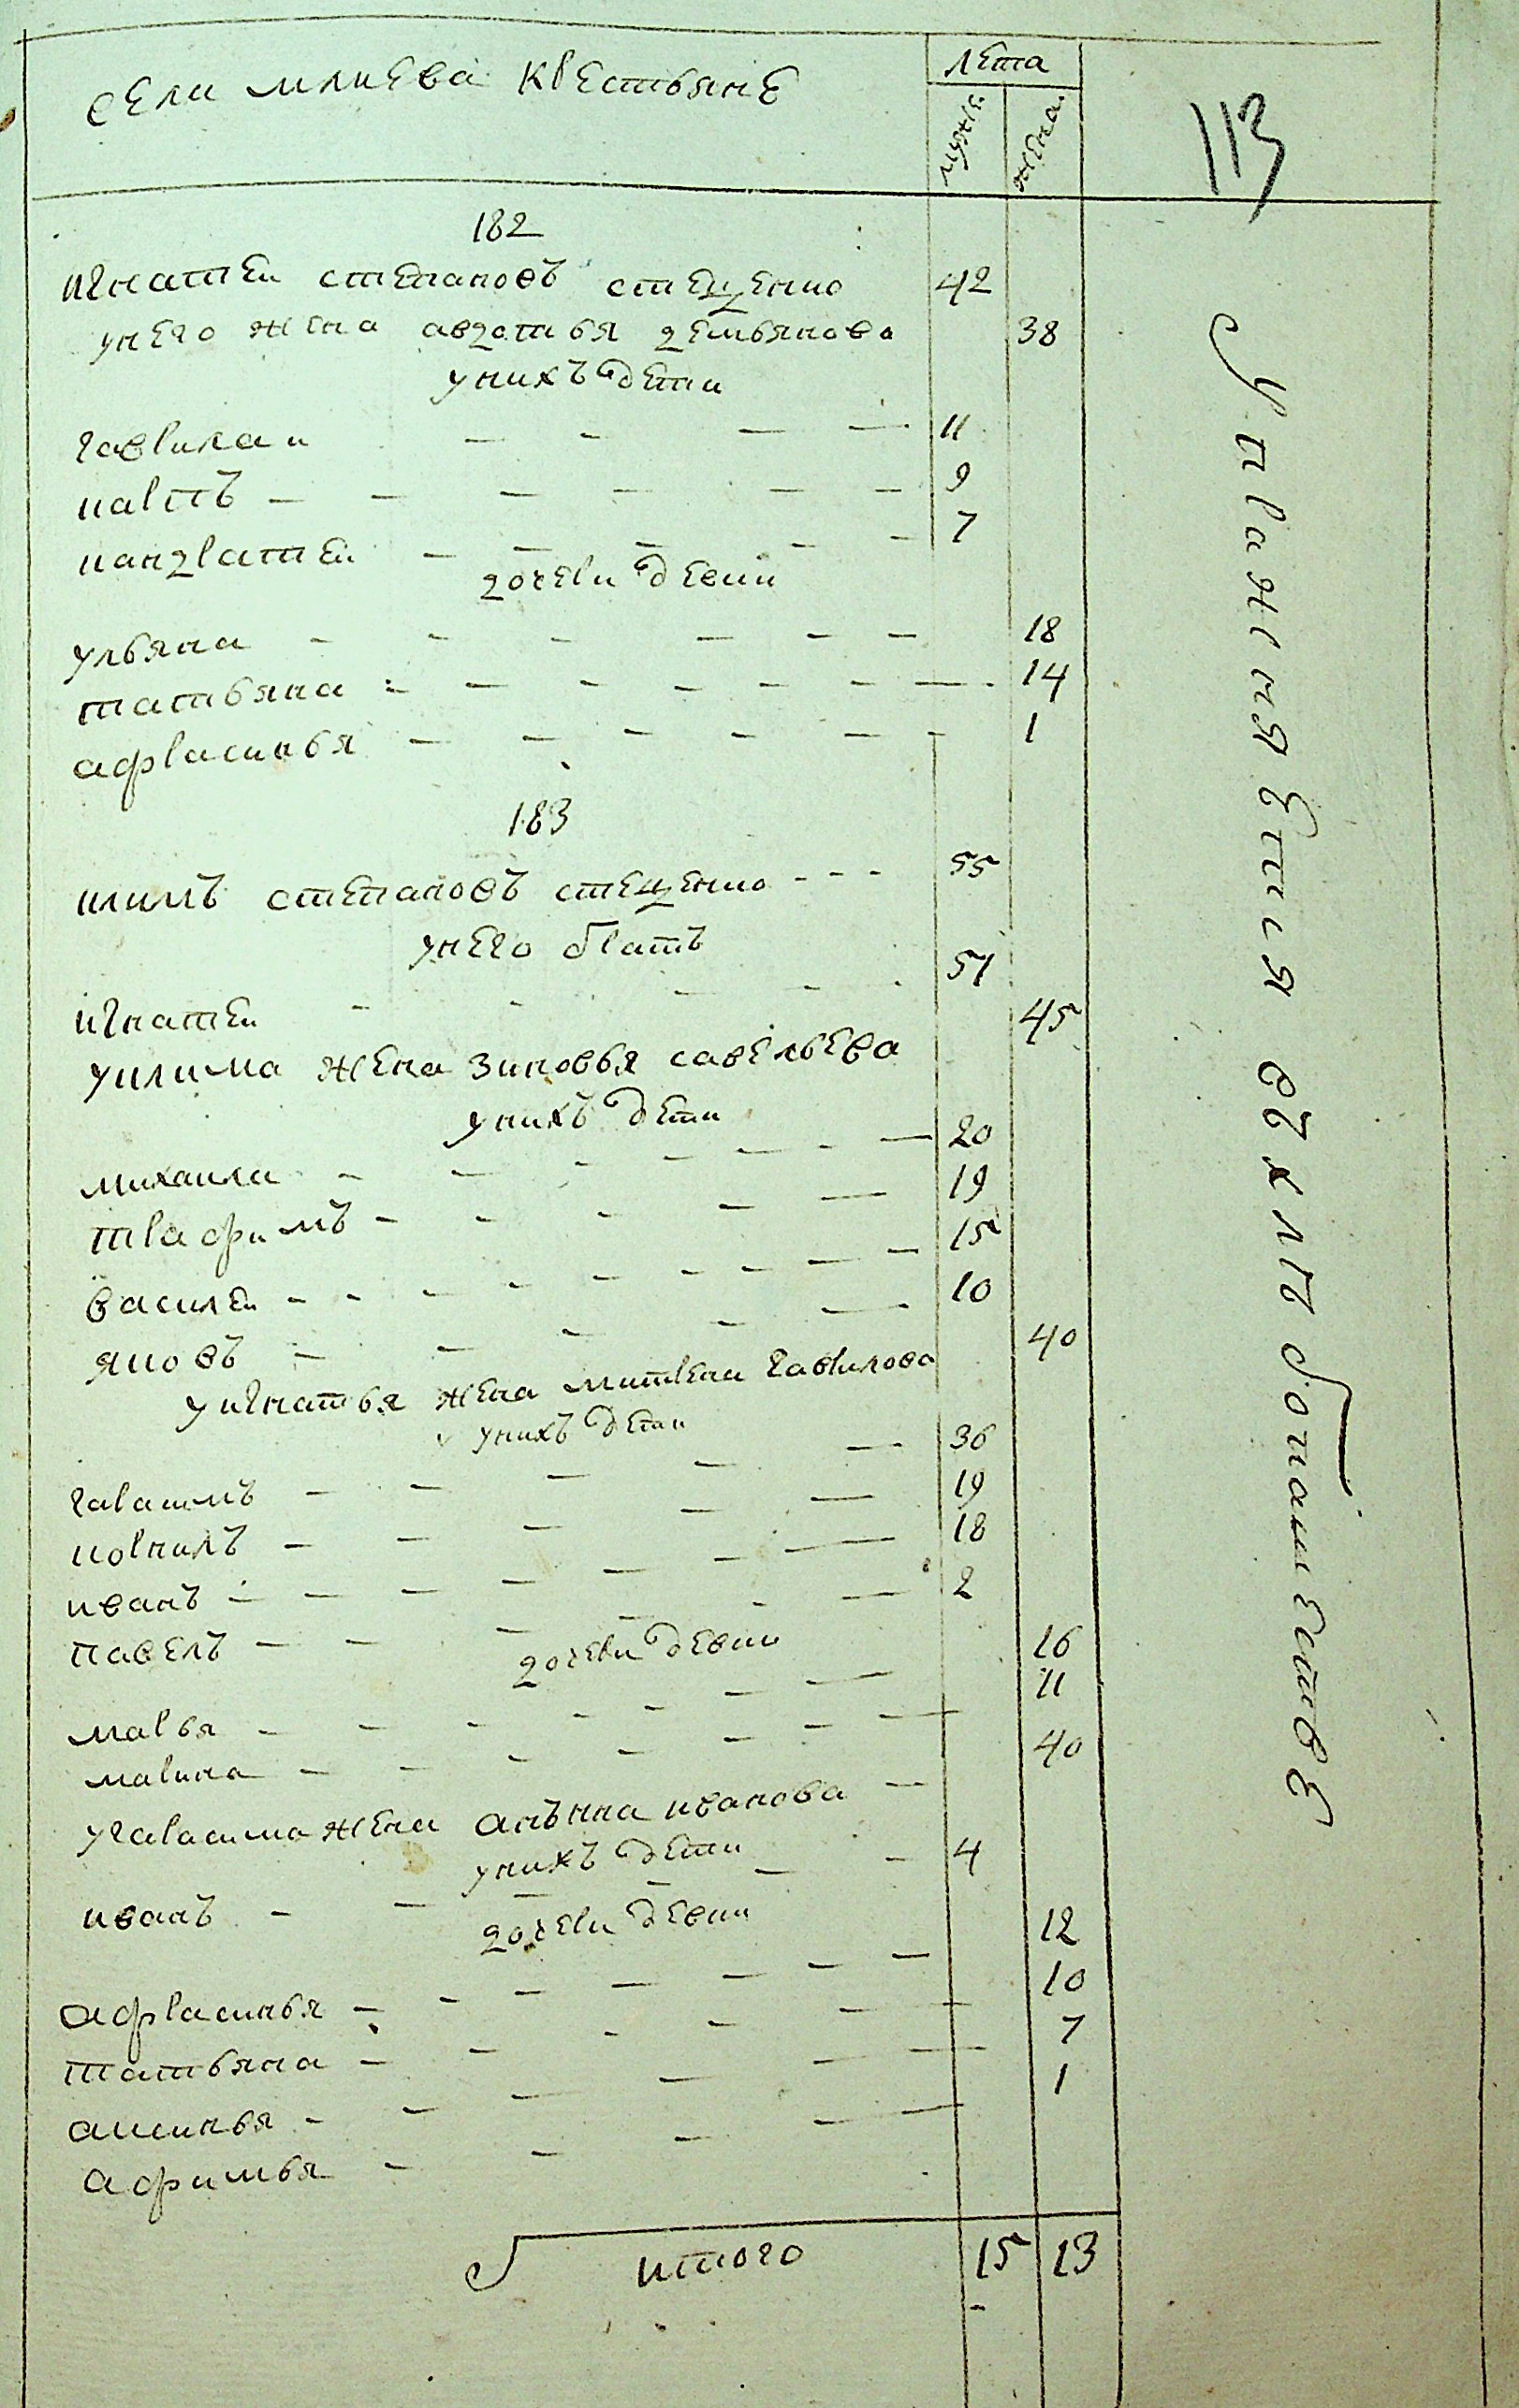 села млиева крестьяне
лета
мужс. жена.
113
182
игнатеи степановъ стеценко 42
унего жена авдотья демьянова 38
унихъ дети
гаврила и 11
карпъ 9
кандратеи 7
дочери девки
ульяна 18
татьяна 14
афрасинья 1
183
климъ степановъ стеценко 55
унего братъ
игнатеи 51
уклима жена зиновья савельева 45
унихъ дети
михаила 20
трафимъ 19
василеи 15
яковъ 10
уигнатья жена митрена гаврилова 40
унихъ дети
гарасимъ 36
корнилъ 19
иванъ 18
павелъ 2
дочери девки
марья 16
марина 11
угарасима жена анънна иванова 40
унихъ дети
иванъ 4
дочери девки
афрасинья 12
татьяна 10
аксинья 7
афимья 1
итого 15 13
упражняется